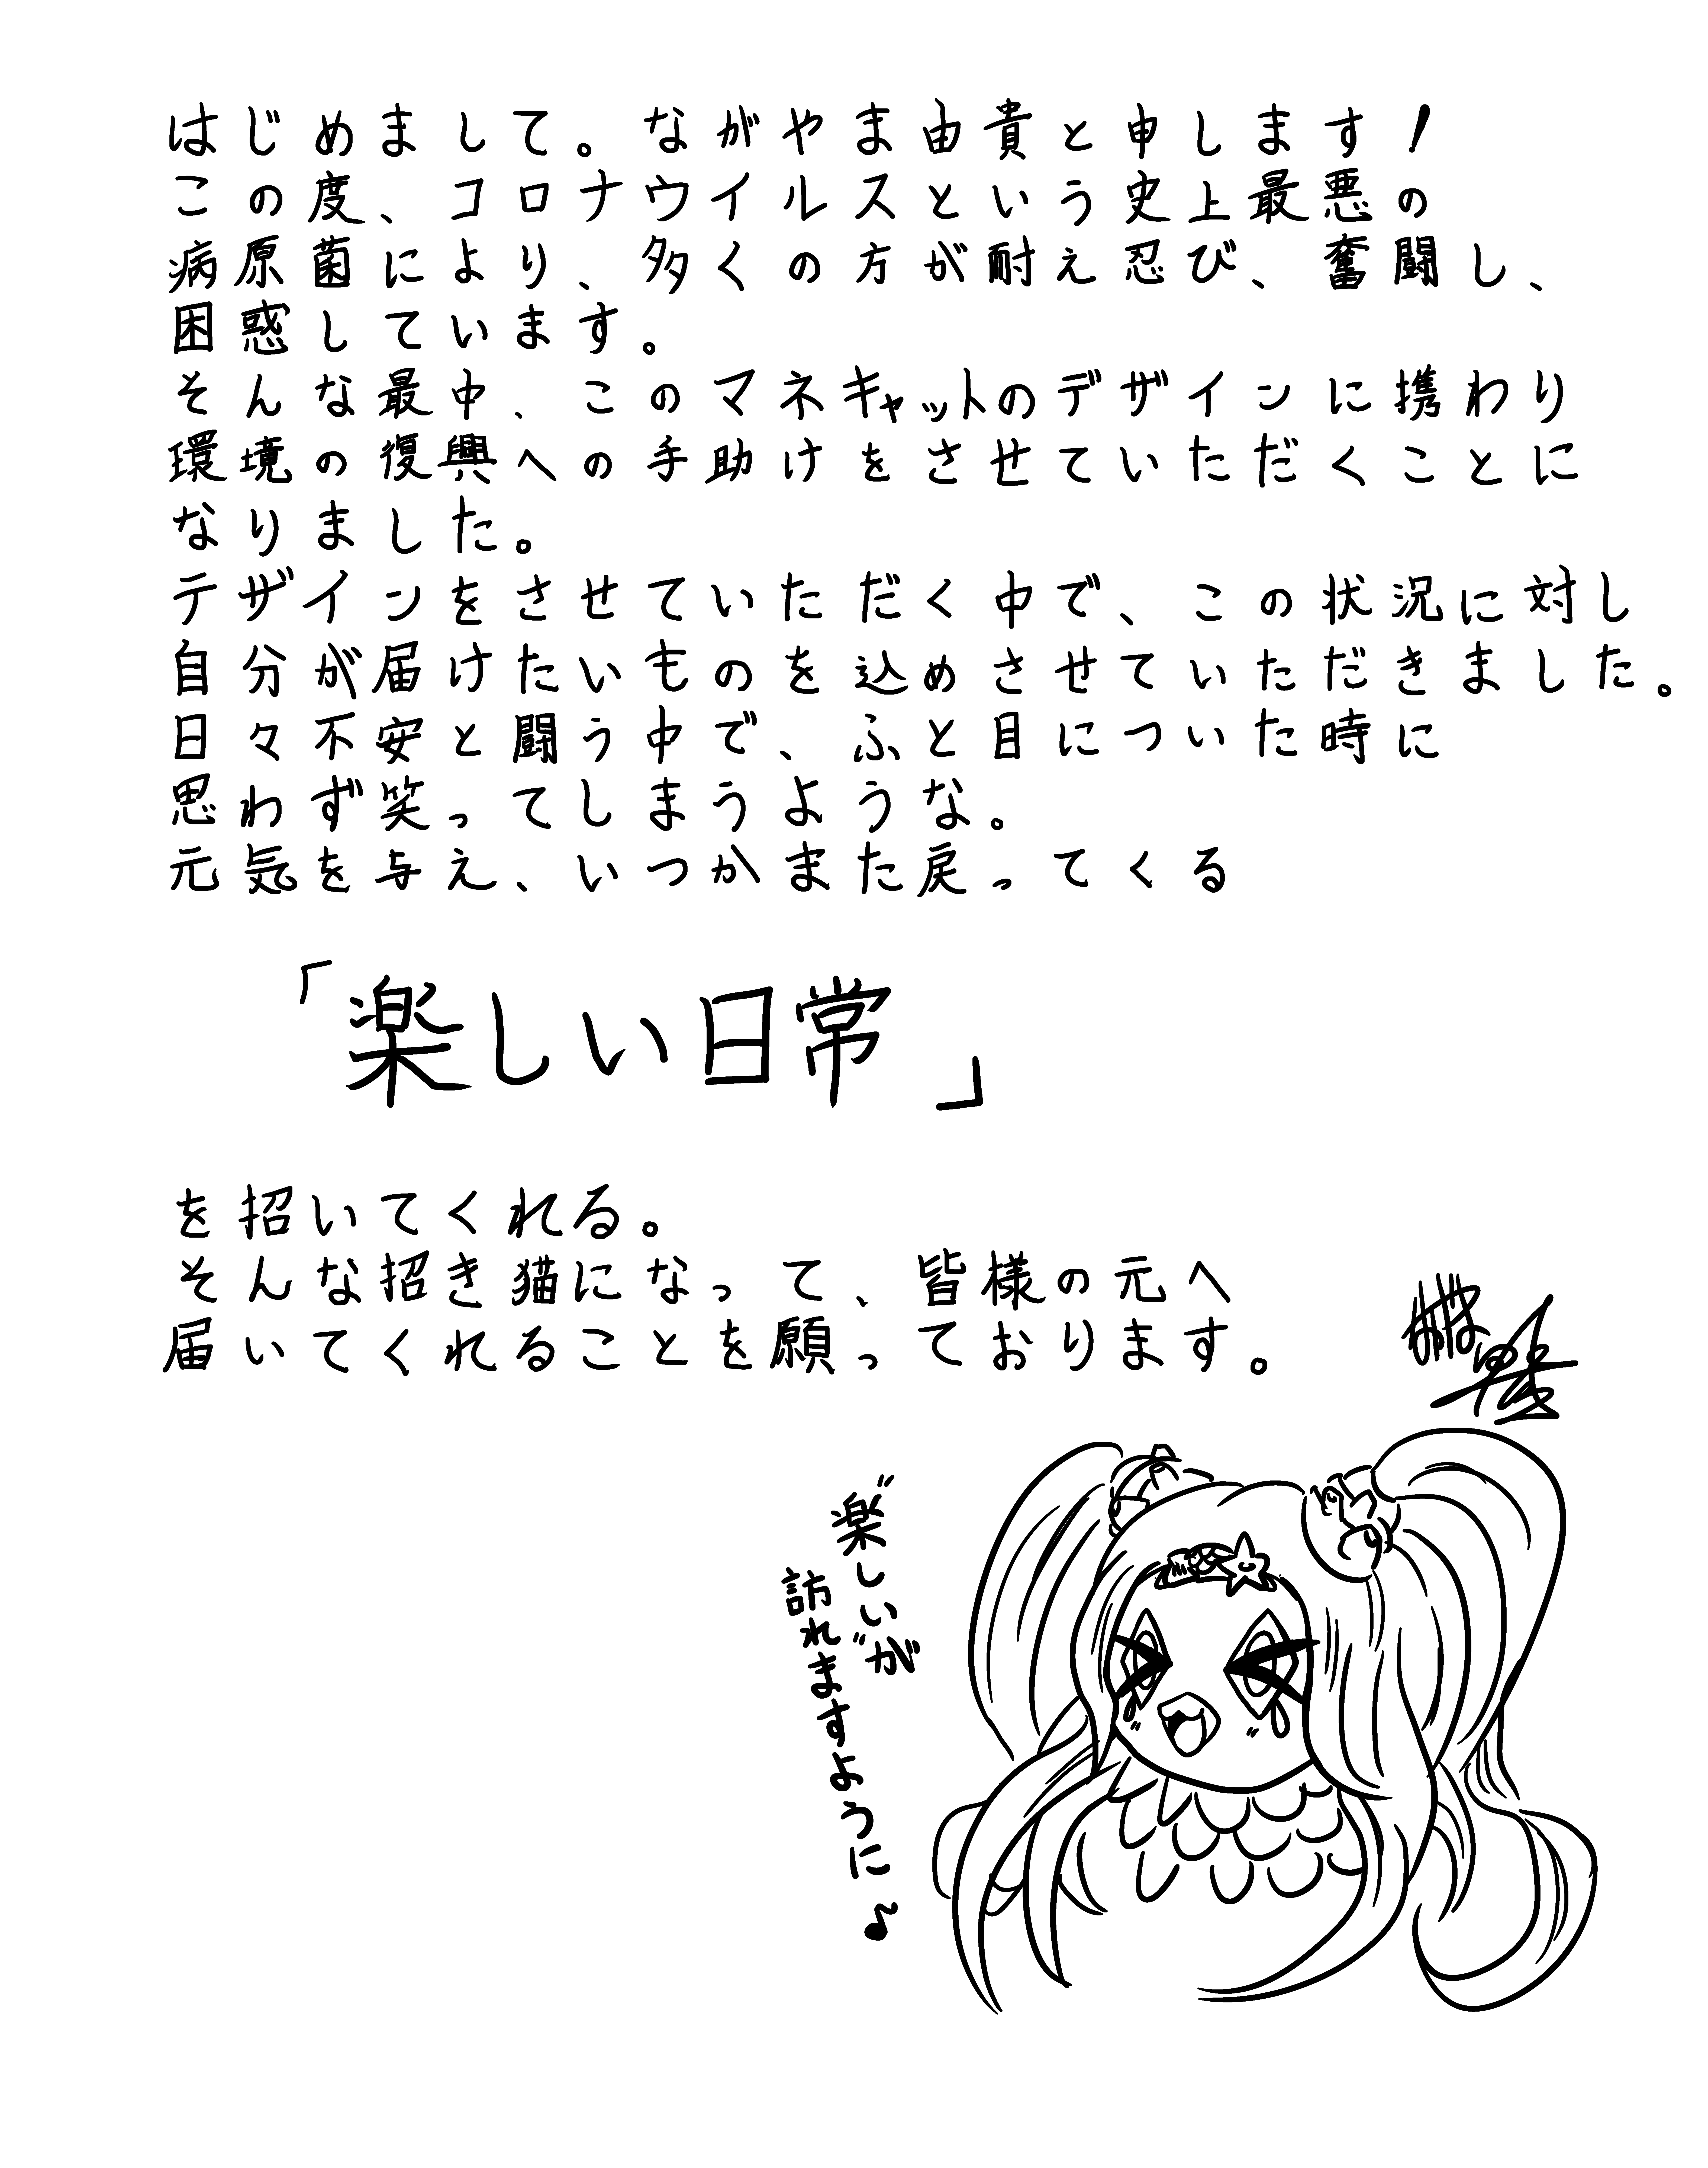 はじめまして。ながやま由貴と申します!
この度、コロナウイルスという史上最悪の
病原菌により、多くの方が耐え忍び、奮闘し、
困惑しています。
そんな最中、このマネキャットのデザインに携わり
環境の復興への手助けをさせていただくことに
なりました。
デザインをさせていただく中で、この状況に対し
自分が届けたいものを込めさせていただきました。
日々不安と闘う中で、ふと目についた時に
思わず笑ってしまうような。
元気を与え、いつかまた戻ってくる
「楽しい日常」
を招いてくれる。
そんな招き猫になって、皆様の元へ
届いてくれることを願っております。
〝楽しい〟が
訪れますように♪